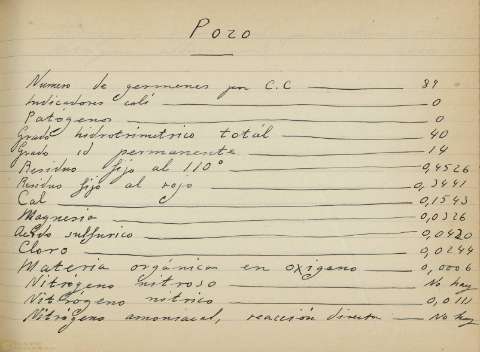 Pozo
Numero de germenes por C.C 89
Indicadores coli 0
Patógenos 0
Grado hidrotrimetrico totál 40
Grado id permanente 14
Residuo fijo al 110° 0,4526
Residuo fijo al rojo 0,3441
Cal 0,1543
Magnesia 0,0326
Acido sulfurico 0,0420
Cloro 0,0244
Materia orgánica en oxigeno 0,0006
Nitrógeno nitroso No hay
Nitrógeno nitrico 0,0111
Nitrógeno amoniacal, reacción directa No hay